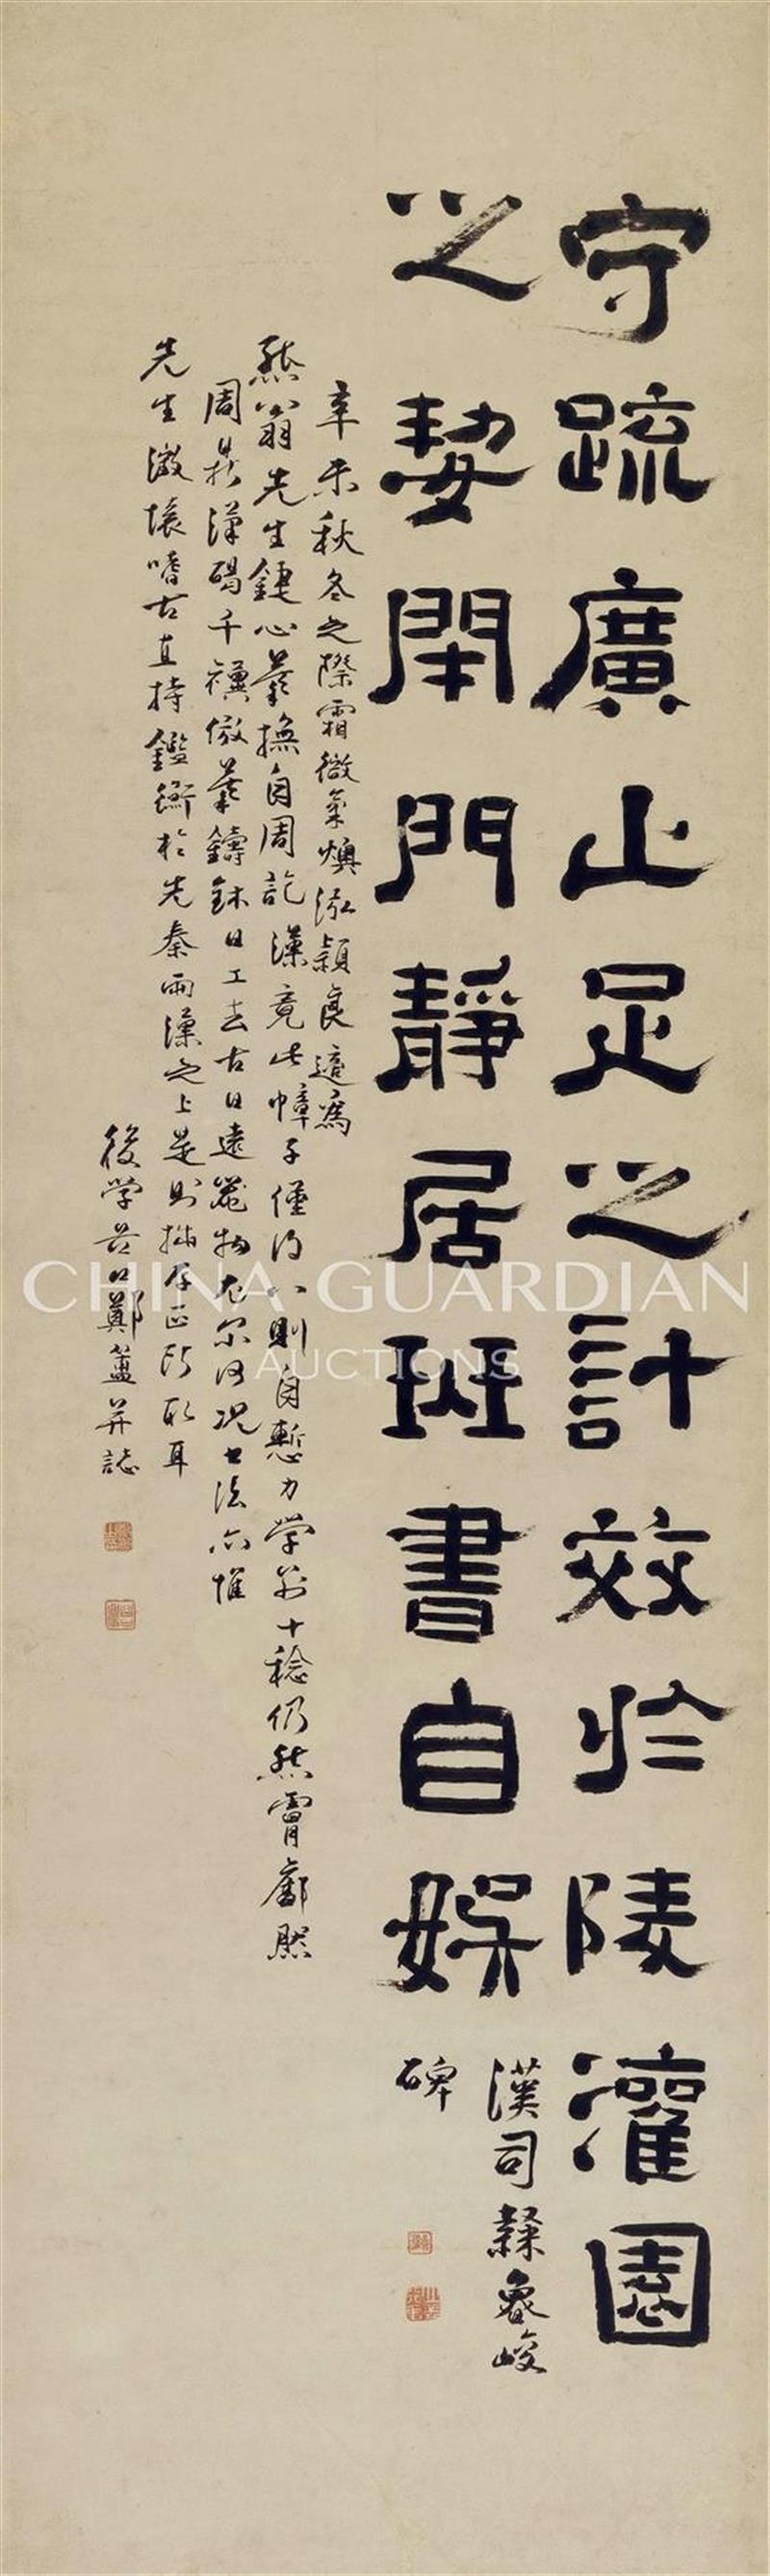 守疏廣止足之計效於陵灌園
之㓗閉門靜居琴書自娛
漢司隸魯峻
碑
辛未秋冬之際霜微氣燠泓穎良適為
然翁先生鍾心摹撫自周訖漢竟此幛子僅得八則自慙力學前十稔仍然膚鄘照
周鼎漢碣千禩倣摹鑄鉥日工去古日遠器物尤爾何況書法亦惟
先生激懷嗜古直持鑑衡於先秦兩漢之上是則拙存正所取耳
後學谷口鄭簠并誌
CHINA GUARDIAN
AUCTIONS